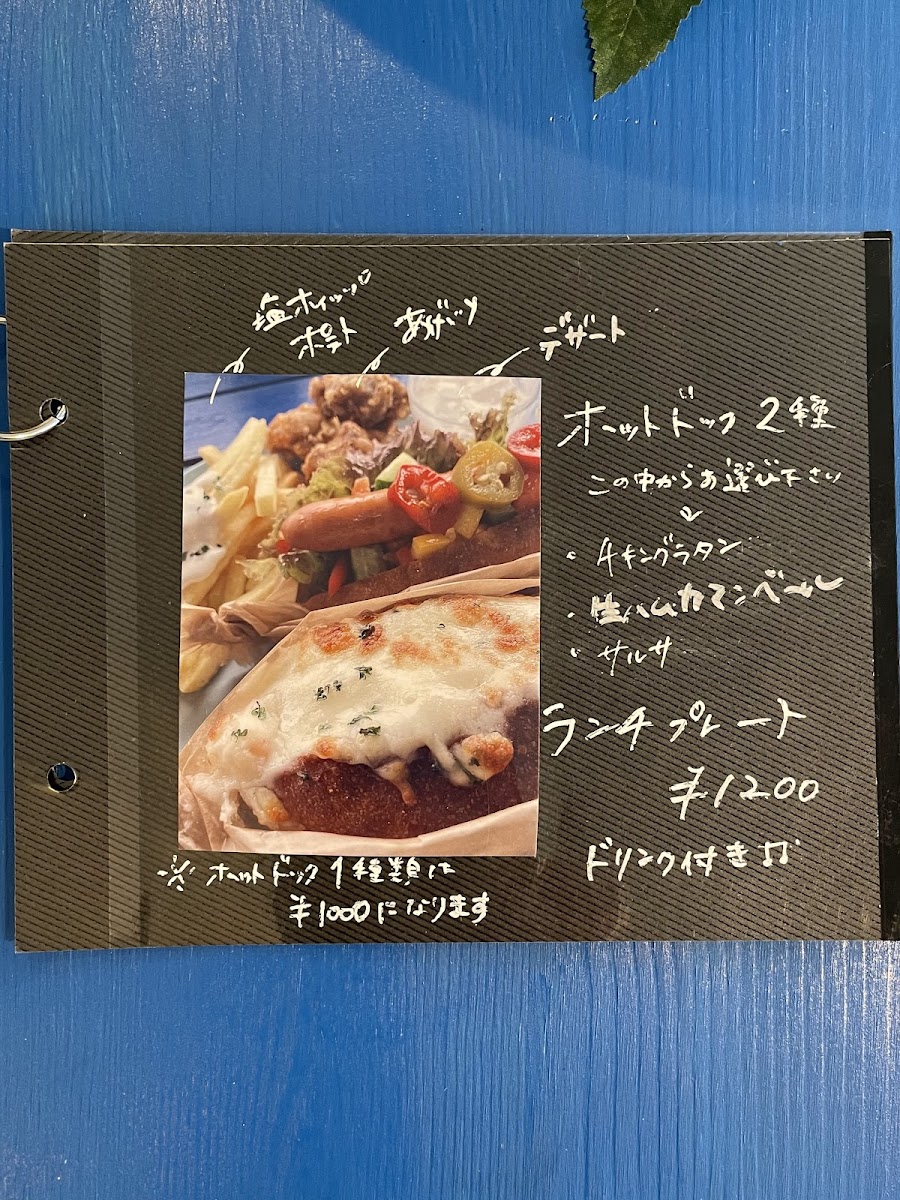 塩ホイップ
ポテト
あげドリ
デザート
ホットドック 2種
この中からお選び下さい
・チキングラタン
・生ハムカマンベール
・サルサ
ランチプレート
¥1200
ドリンク付き♫
※ ホットドック 1種類は
¥1000になります